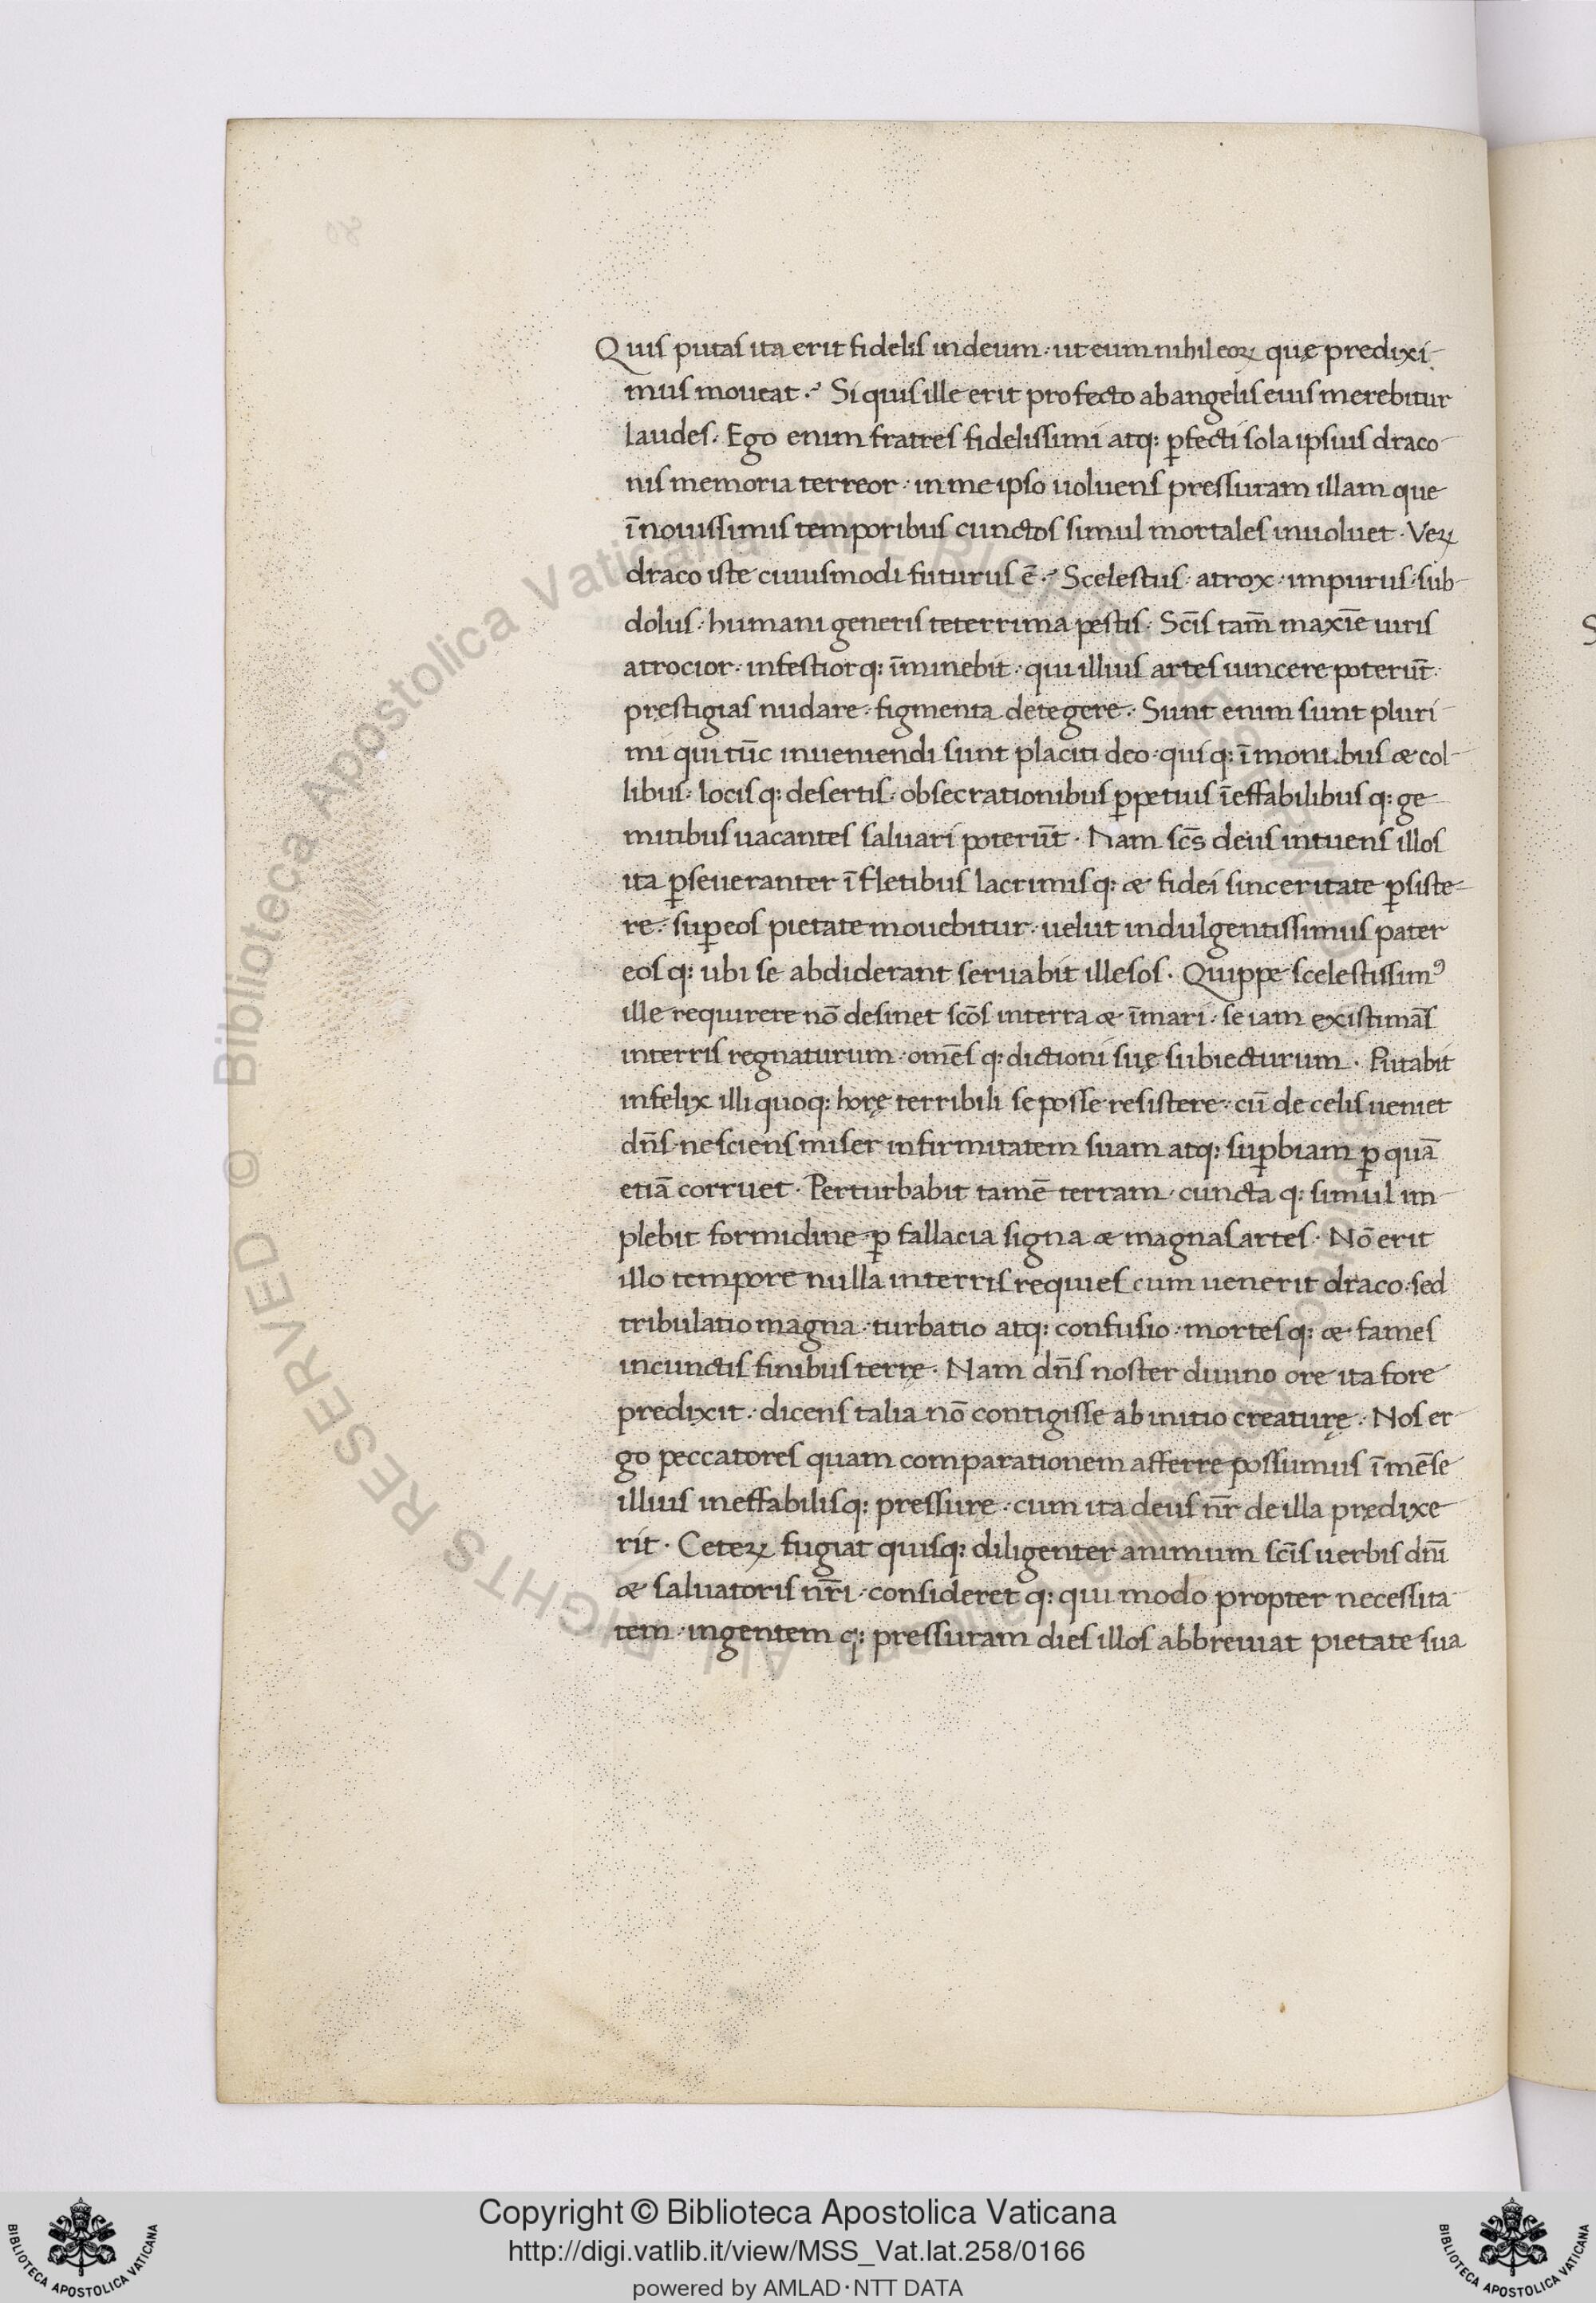 Quis putas ita erit fidelis indeum · ut eum nihil eoꝝ quę predixi-
mus moueat ·? Si quis ille erit profecto ab angelis eius merebitur
laudes · Ego enim fratres fidelissimi atq: ꝑfecti sola ipsius draco-
nis memoria terreor · in me ipso uoluens pressuram illam que
ī nouissimis temporibus cunctos simul mortales inuoluet · Veꝝ
draco iste cuiusmodi futurus ē ·? Scelestus · atrox · impurus · sub-
dolus · humani generis teterrima pestis · Scīs tam̄ maxīe uiris
atrocior · infestiorq: īminebit · qui illius artes uincere poterūt ·
prestigias nudare · figmenta detegere · Sunt enim sunt pluri-
mi qui tūc inueniendi sunt placiti deo · qui q: ī montibus & col-
libus · locis q: desertis · obsecrationibus ꝑpetuis īeffabilibus q: ge-
mitibus uacantes saluari poterūt · Nam scs̄ deus intuens illos
ita ꝑseueranter ī fletibus lacrimis q: & fidei sinceritate ꝑsiste-
re · suꝑ eos pietate mouebitur · uelut indulgentissimus pater
eos q: ubi se abdiderant seruabit illesos · Quippe scelestissimꝰ
ille requirere nō desinet scōs interra & ī mari · se iam existimās
interris regnaturum · omēs q: dictioni suę subiecturum · Putabit
infelix illi quoq: horę terribili se posse resistere · cū de celis ueniet
dn̄s · nesciens miser infirmitatem suam atq: suꝑbiam ꝑ quā
etiā corruet · Perturbabit tamē terram · cuncta q: simul im-
plebit formidine · ꝑ fallacia signa & magnas artes · Nō erit
illo tempore nulla interris requies cum uenerit draco · sed
tribulatio magna · turbatio atq: confusio · mortes q: & fames
incunctis finibus terrę · Nam dn̄s noster diuino ore ita fore
predixit · dicens talia nō contigisse ab initio creaturę · Nos er-
go peccatores quam comparationem afferre possumus ī mēse
illius ineffabilisq: pressurę · cum ita deus nr̄ de illa prędixe-
rit · Ceteꝝ fugiat quisq: diligenter animum scīs uerbis dn̄i
& saluatoris nr̄i · consideret q: qui modo propter necessita-
tem · ingentem q: pressuram dies illos abbreuiat pietate sua
Copyright © Biblioteca Apostolica Vaticana
http://digi.vatlib.it/view/MSS_Vat.lat.258/0166
powered by AMLAD·NTT DATA
BIBLIOTECA APOSTOLICA VATICANA
BIBLIOTECA APOSTOLICA VATICANA